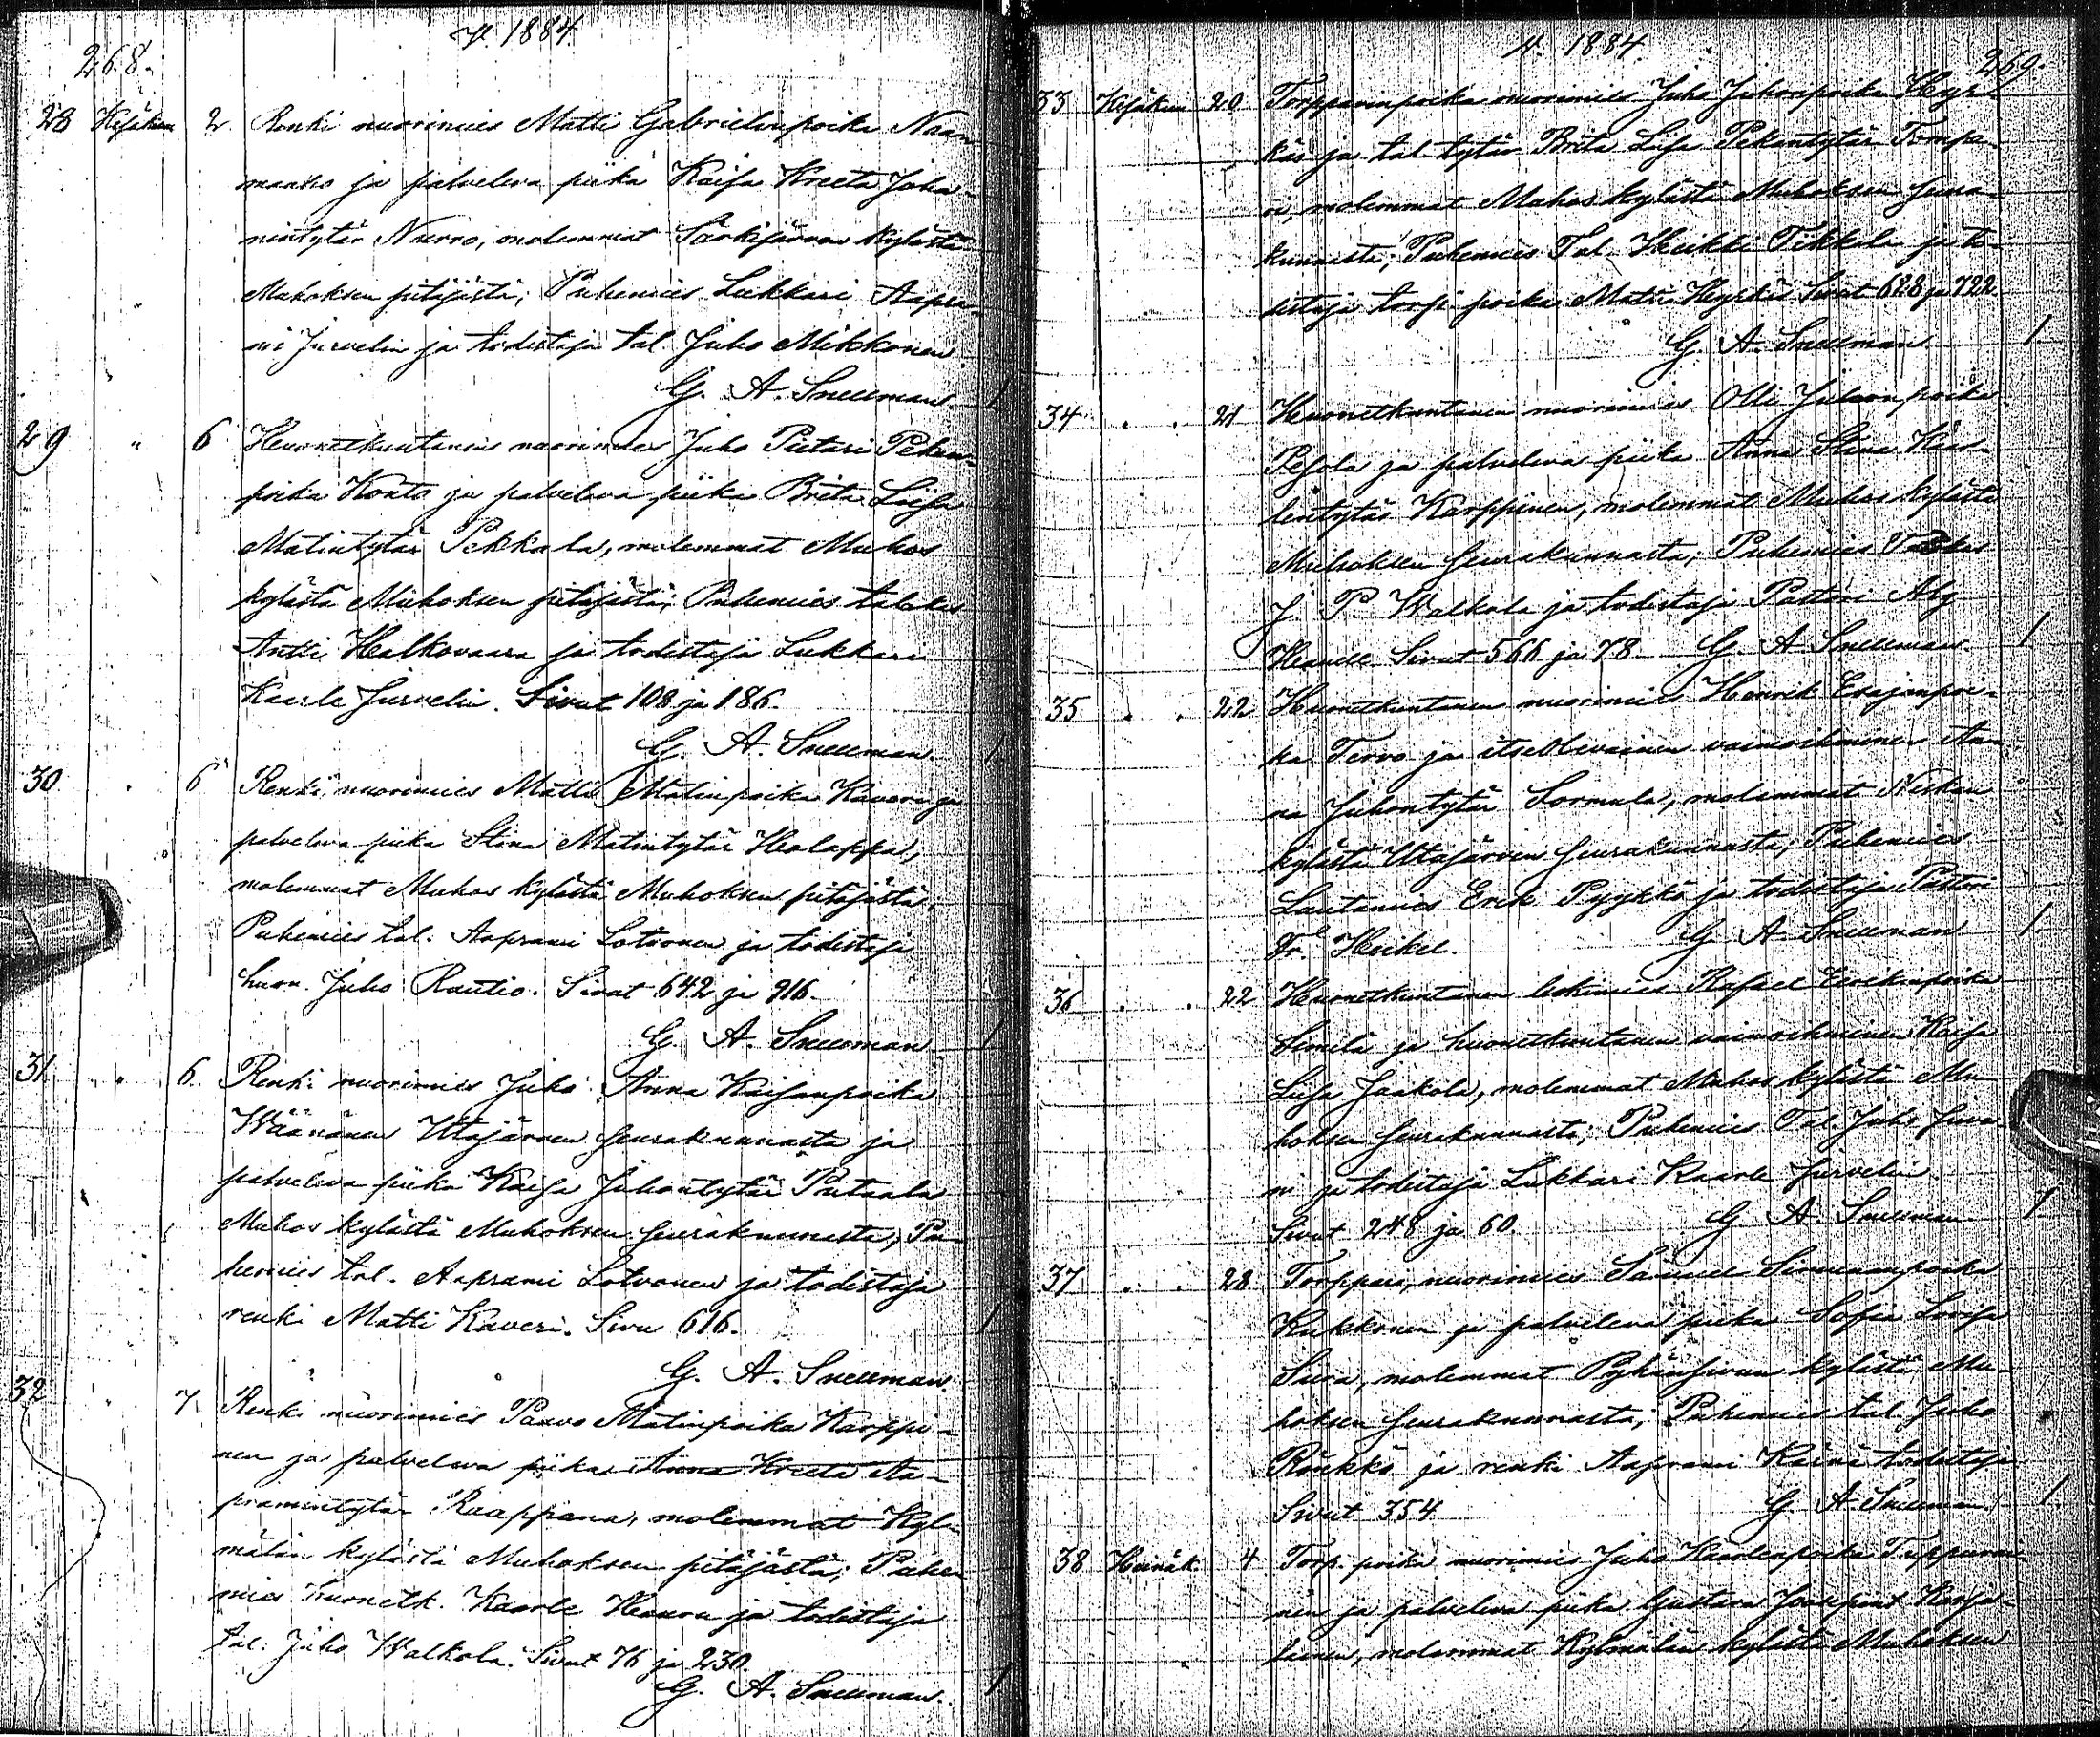 268.
v. 1884.
28 Kesäkuu 2 Renki nuorimies Matti Gabrielinpoika Naa-
manko ja palveleva piika Kaisa Kreeta Joha-
nintytär Nurro, molemmat Särkijärven kylästä
Muhoksen pitäjästä; Puhemies Lukkari Aapra-
mi Jurvelin ja todistaja tal. Juho Mikkonen.
G. A. Snellman. 1
29 " 6 Huonetkuntanen nuorimies Juho Pietari Pekan-
poika Konto ja palveleva piika Brita Liisa
Matintytär Pekkala, molemmat Muhos
kylästä Muhoksen pitäjästä; Puhemies talokas
Antti Halkovaara ja todistaja Lukkari
Kaarle Jurvelin. Sivut 108 ja 186.
G. A. Snellman. 1.
30. . 6 Renki nuorimies Matti Matinpoika Kaveri ja
palveleva piika Stina Matintytär Holappa,
molemmat Muhos kylästä Muhoksen pitäjästä;
Puhemies tal. Aaprami Lotvonen ja todistaja
huon. Juho Rautio. Sivut 642 ja 916.
G. A. Snellman. 1
31 . 6. Renki nuorimies Juho Anna Kaisanpoika
Väänänen Utajärven seurakunnasta ja
palveleva piika Kaisa Juhontytär Putaala
Muhos kylästä Muhoksen seurakunnasta; Pu-
hemies tal. Aaprami Lotvonen ja todistaja
renki Matti Kaveri. Sivu 616. 1
G. A. Snellman.
32 7. Renki nuorimies Paavo Matinpoika Karppi-
nen ja palveleva piika Anna Kreeta Aa-
pramintytär Kaappana, molemmat Kyl-
mälän kylästä Muhoksen pitäjästä; Puhe-
mies huonetk. Kaarle Haura ja todistaja
tal. Juho Walkola. Sivut 76 ja 230.
G. A. Snellman. 1.
v. 1884.
269.
33 Kesäkuu 20 Torpparinpoika nuorimies Juho Juhonpoika Hyr-
käs ja tal. tytär Brita Liisa Pekantytär Tomp-
ri, molemmat Muhos kylästä Muhoksen seura-
kunnasta; Puhemies Tal. Heikki Tikkala ja to-
distaja torp. poika Matti Hyrkäs Sivut 628 ja 722.
G. A. Snellman 1
34 . . 21 Huonetkuntanen nuorimies Olli Juhonpoika
Pesola ja palveleva piika Anna Stina Kaar-
lentytär Karppinen, molemmat Muhos kylästä
Muhoksen seurakunnasta; Puhemies
J. P. Walkola ja todistaja Pastori Alg.
Sivut 566 ja 78. G. A. Snellman. 1
35 . . 22 Huonetkuntanen nuorimies Henrik
ka Tervo ja itsellinen vaimoihminen An-
na Juhontytär Sormula, molemmat Niskan
kylästä Utajärven seurakunnasta; Puhemies
Lautamies Erik Pyykkö ja todistaja Pastori
Fr. Heikel. G. A. Snellman 1.
36 . . 22 Huonetkuntanen leskimies Rafael Eerikinpoika
Simila ja huonetkuntanen vaimoihminen Kaisa
Liisa Jaakola, molemmat Muhos kylästä Mu-
hoksen seurakunnasta; Puhemies Tal. Juho
ni ja todistaja Lukkari Kaarle Jurvelin.
Sivut 248 ja 60. G. A. Snellman. 1.
37 . . 28 Torppari, nuorimies Samuel Simunanpoika
Kukkonen ja palveleva piika Sofia Lovisa
Siira, molemmat Pyhänsivun kylästä Mu-
hoksen seurakunnasta; Puhemies tal. Juho
Rönkkö ja renki Aaprami todistaja
Sivut 354 G. A. Snellman. 1.
38 Heinäk. 4 Torp. poika nuorimies Juho Kaarlenpoika Tuppurai-
nen ja palveleva piika Gustava Josefina Karja-
lainen, molemmat Kylmälän kylästä Muhoksen